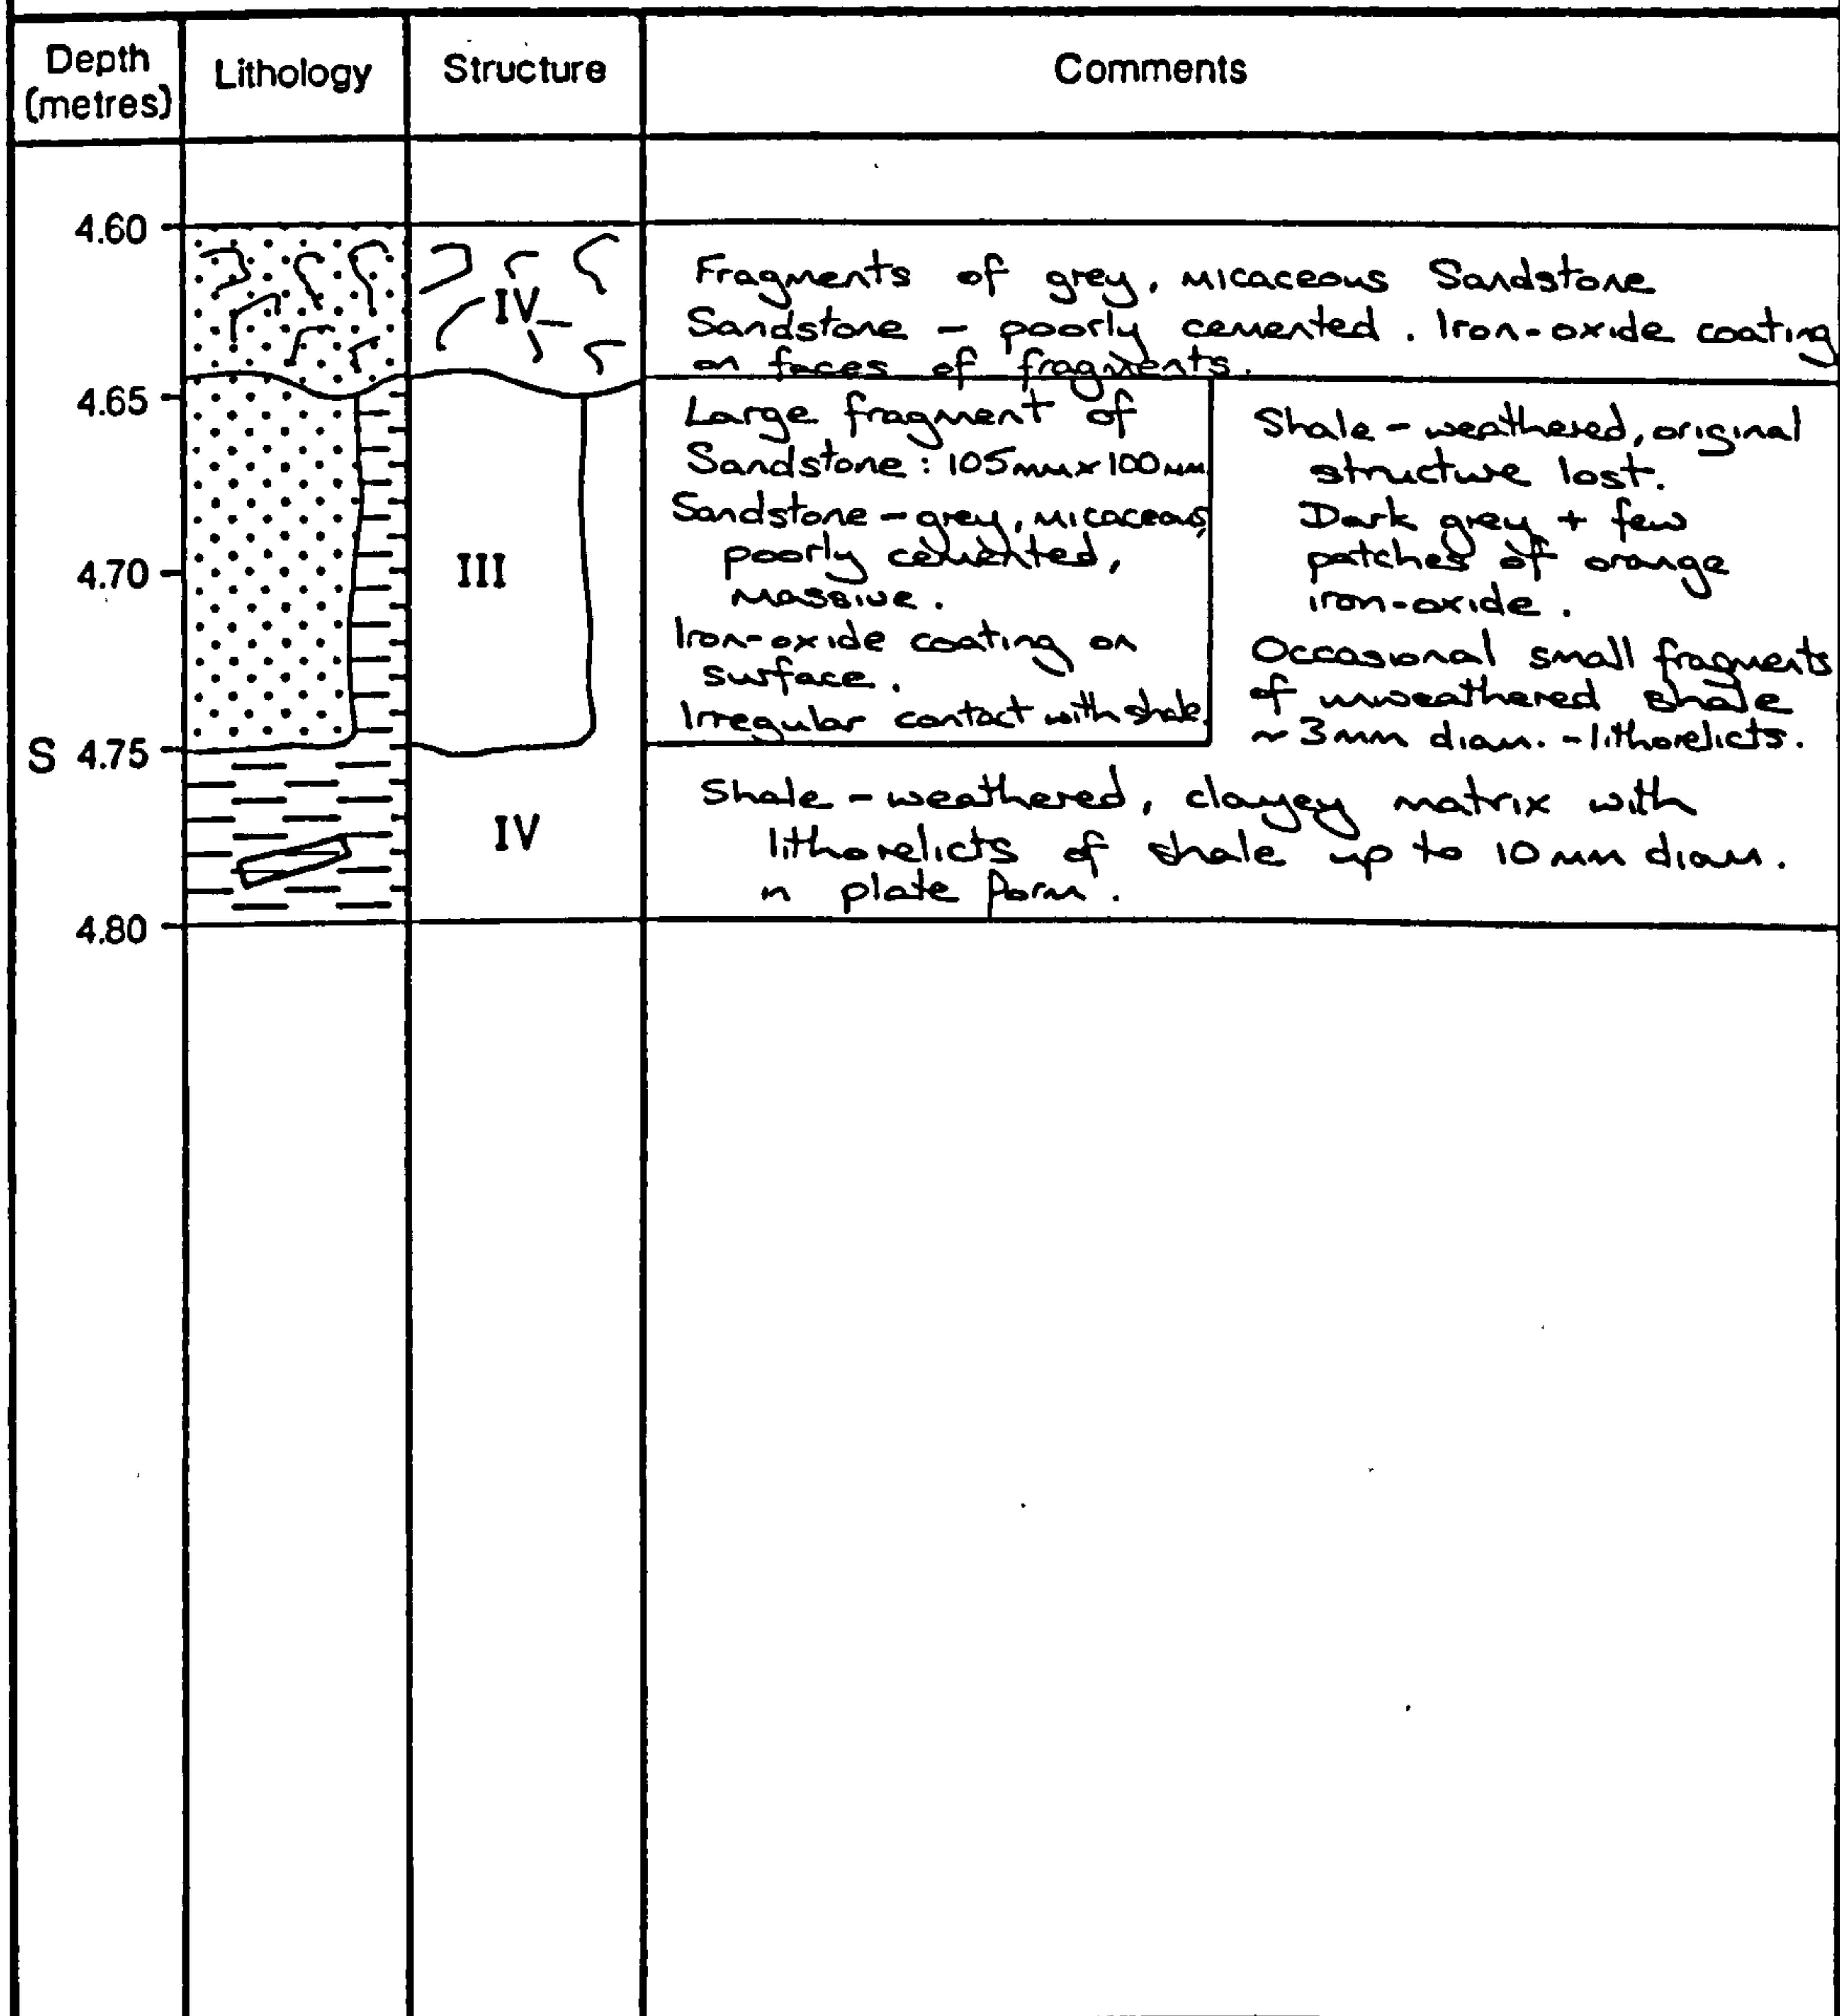 Depth
(metres)
Lithology
Structure
Comments
4.60
IV
Fragments of grey, micaceous Sandstone
Sandstone - poorly cemented. Iron-oxide coating
on faces of fragments.
4.65
Large fragment of
Sandstone : 105mm x 100mm
Sandstone - grey, micaceous,
poorly cemented,
massive.
Iron-oxide coating on
surface.
Irregular contact with shale.
Shale - weathered, original
structure lost.
Dark grey + few
patches of orange
iron-oxide.
Occasional small fragments
of unweathered shale
~ 3mm diam. - lithorelicts.
4.70
III
S 4.75
IV
Shale - weathered, clayey matrix with
lithorelicts of shale up to 10mm diam.
in plate form.
4.80